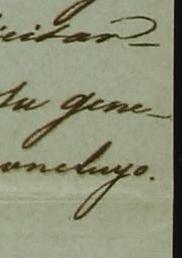 icitar
su gene-
oncluyo.